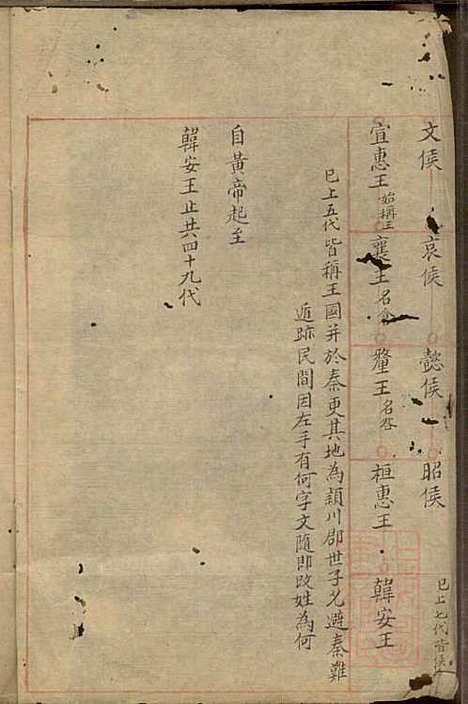 文侯 哀侯 懿侯 昭侯 已上七代皆侯
宣惠王始稱王 襄王名倉 釐王名咎 桓惠王 韓安王
已上五代皆稱王國并於秦更其地為頴川郡世子允避秦難
遁跡民間因左手有何字文隨即改姓為何
自黃帝起至
韓安王止共四十九代